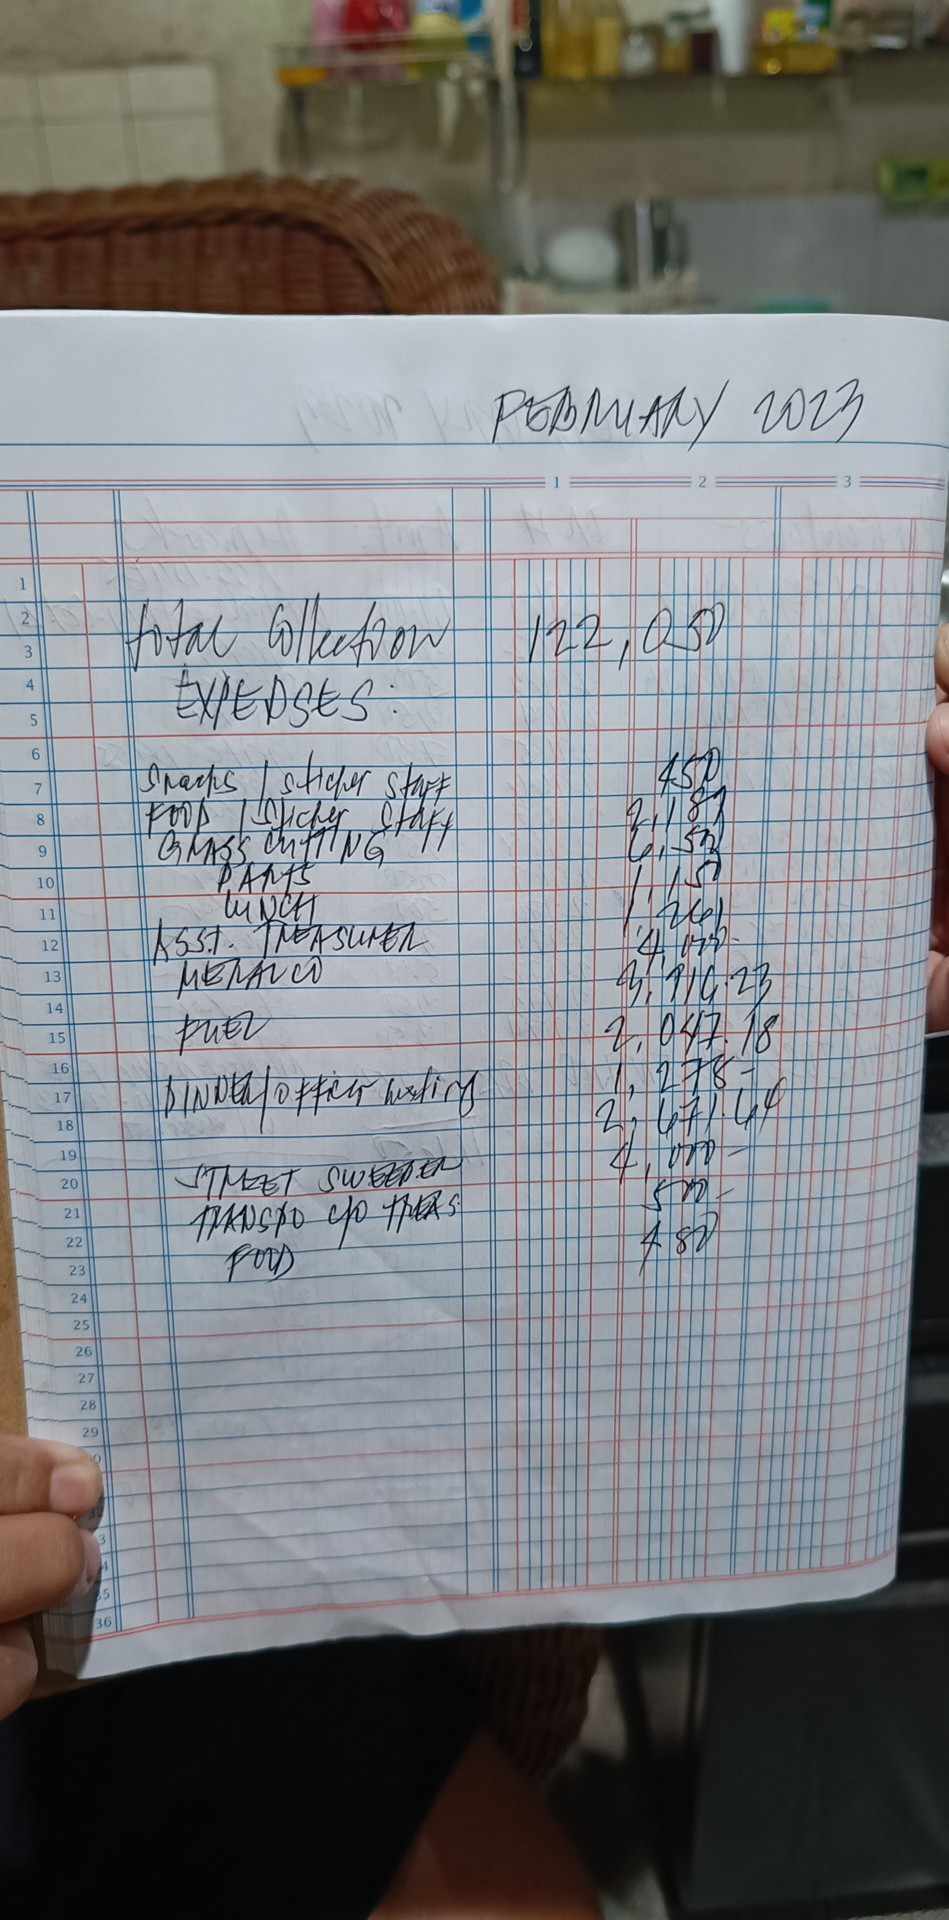 FEBRUARY 2023
1 2 3
1
2 Total Collection 122,050
3
4 EXPENSES:
5
6
7 Snacks / sticker staff 450
8 FOOD / Sticker Staff 2,187
9 GRASS CUTTING 6,500
10 PARTS 1,150
11 LUNCH 1,261
12 ASST. TREASURER 4,000-
13 MERALCO
14
15 FUEL 2,047.18
16 1,278-
17 DINNER/officer meeting 2,671.64
18
19 4,000-
20 STREET SWEEPER
21 TRANSPO c/o TREAS 500-
22 480
23 FOOD
24
25
26
27
28
29
36